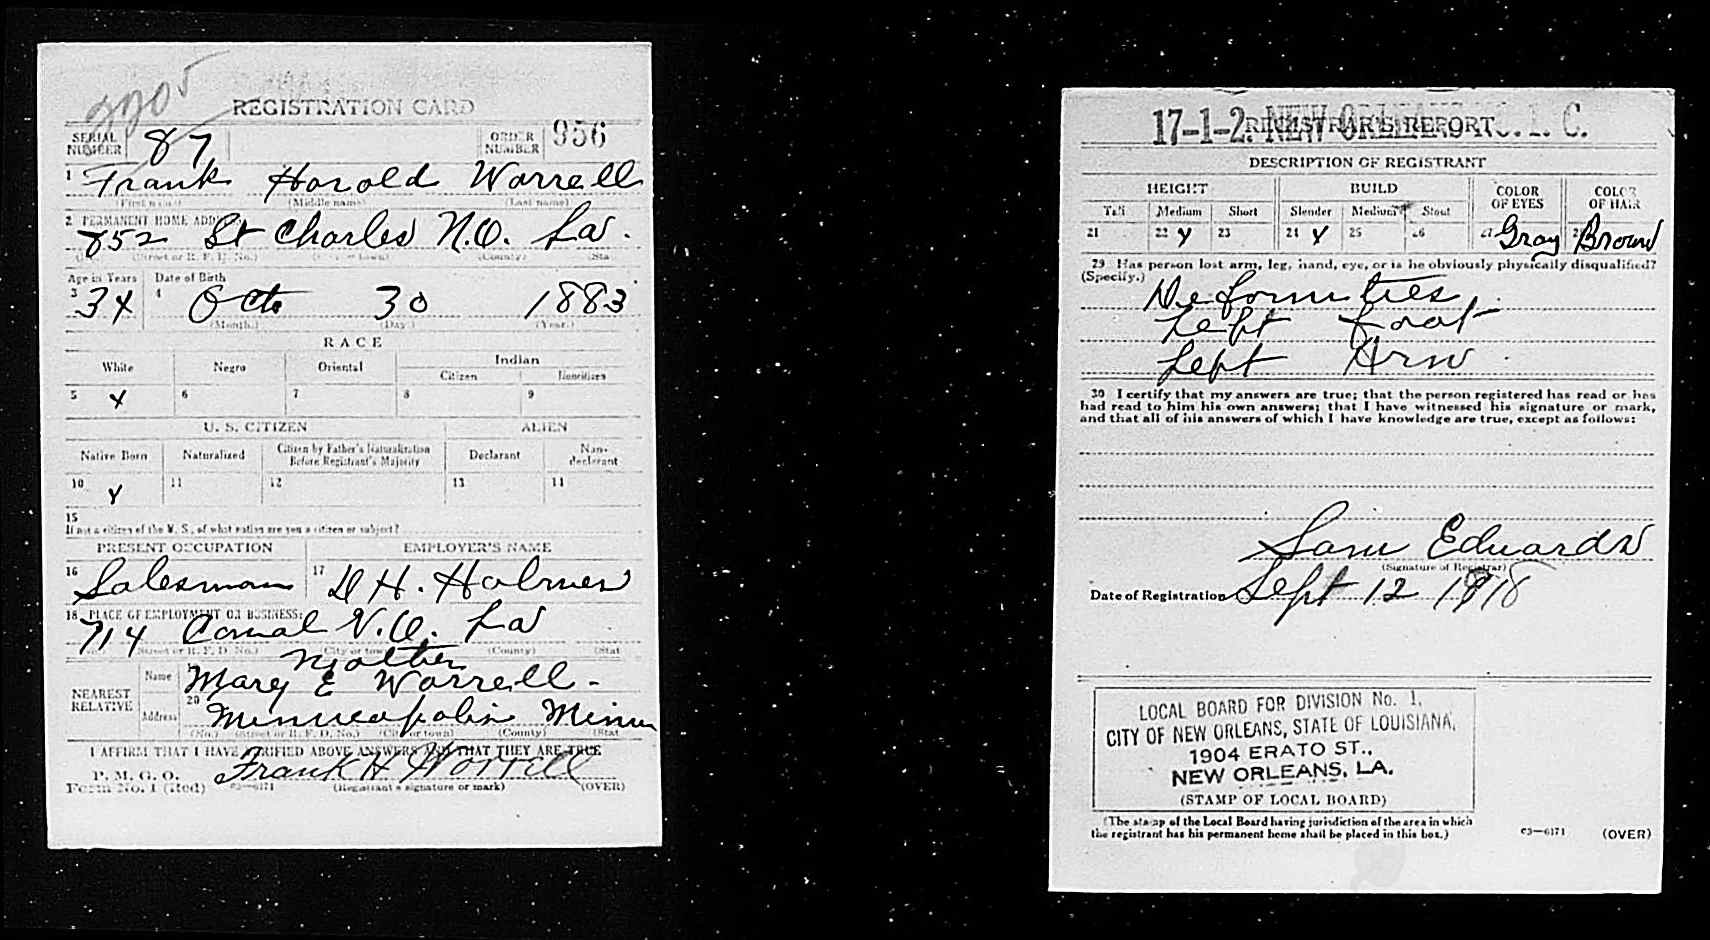 2205
REGISTRATION CARD
SERIAL NUMBER 87 ORDER NUMBER 956
1 Frank Harold Worrell
(First name) (Middle name) (Last name)
2 PERMANENT HOME ADDRESS
852 St Charles N.O. La.
(No.) (Street or R. F. D. No.) (City or town) (County) (State)
Age in Years Date of Birth
3 34 4 Octo 30 1883
(Month.) (Day.) (Year.)
RACE
White Negro Oriental Indian
Citizen Noncitizen
5 X 6 7 8 9
U. S. CITIZEN ALIEN
Native Born Naturalized Citizen by Father's Naturalization Before Registrant's Majority Declarant Non-declarant
10 X 11 12 13 14
15
If not a citizen of the U. S., of what nation are you a citizen or subject?
PRESENT OCCUPATION EMPLOYER'S NAME
16 Salesman 17 D H. Holmes
18 PLACE OF EMPLOYMENT OR BUSINESS:
714 Canal N.O. La
(No.) (Street or R. F. D. No.) (City or town) (County) (State)
Mother
NEAREST RELATIVE Name Mary E Worrell -
Address 20 Minneapolis Minn
(No.) (Street or R. F. D. No.) (City or town) (County) (State)
I AFFIRM THAT I HAVE VERIFIED ABOVE ANSWERS AND THAT THEY ARE TRUE
P. M. G. O.
Form No. 1 (Red) 03—6171 Frank H Worrell (Registrant's signature or mark) (OVER)
17-1-2. NEW ORLEANS
REGISTRAR'S REPORT
DESCRIPTION OF REGISTRANT
HEIGHT BUILD COLOR OF EYES COLOR OF HAIR
Tall Medium Short Slender Medium Stout
21 22 X 23 24 X 25 26 27 Gray 28 Brown
29 Has person lost arm, leg, hand, eye, or is he obviously physically disqualified?
(Specify.)
Deformities
Left foot
Left Arm
30 I certify that my answers are true; that the person registered has read or has
had read to him his own answers; that I have witnessed his signature or mark,
and that all of his answers of which I have knowledge are true, except as follows:
Sam Edwards
(Signature of Registrar)
Date of Registration Sept 12 1918
LOCAL BOARD FOR DIVISION No. 1,
CITY OF NEW ORLEANS, STATE OF LOUISIANA,
1904 ERATO ST.,
NEW ORLEANS, LA.
(STAMP OF LOCAL BOARD)
(The stamp of the Local Board having jurisdiction of the area in which
the registrant has his permanent home shall be placed in this box.)
03—6171 (OVER)